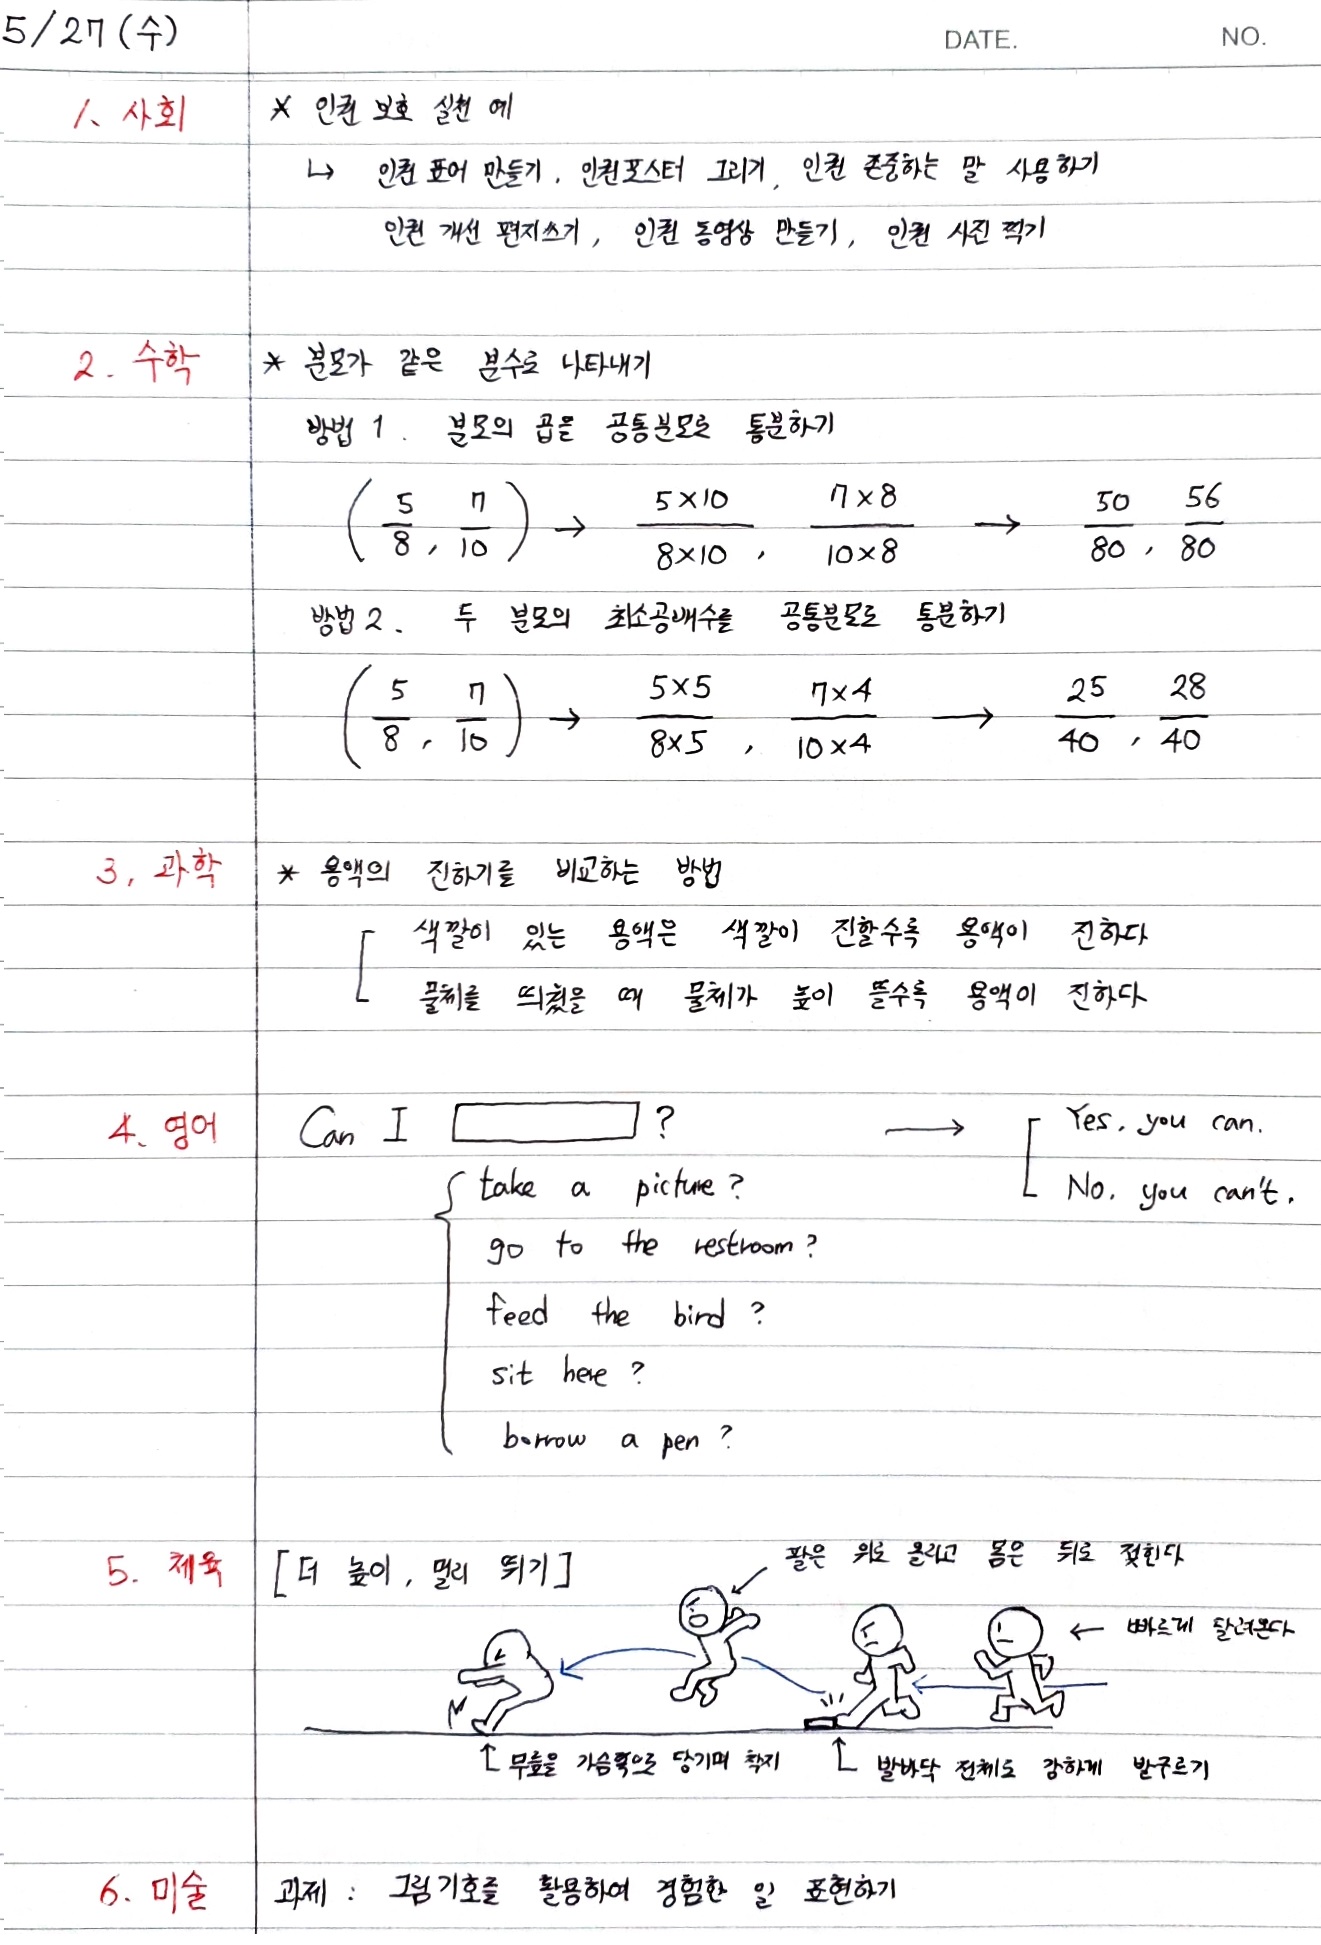 5/27 (수)
DATE.
NO.
1. 사회
* 인권 보호 실천 예
↳ 인권 표어 만들기, 인권포스터 그리기, 인권 존중하는 말 사용하기
인권 개선 편지쓰기, 인권 동영상 만들기, 인권 사진 찍기
2. 수학
* 분모가 같은 분수로 나타내기
방법 1. 분모의 곱을 공통분모로 통분하기
(5/8, 7/10) → 5×10/8×10, 7×8/10×8 → 50/80, 56/80
방법 2. 두 분모의 최소공배수를 공통분모로 통분하기
(5/8, 7/10) → 5×5/8×5, 7×4/10×4 → 25/40, 28/40
3. 과학
* 용액의 진하기를 비교하는 방법
색깔이 있는 용액은 색깔이 진할수록 용액이 진하다
물체를 띄웠을 때 물체가 높이 뜰수록 용액이 진하다
4. 영어
Can I ? → Yes, you can.
No, you can't.
take a picture?
go to the restroom?
feed the bird?
sit here?
borrow a pen?
5. 체육
[더 높이, 멀리 뛰기]
팔은 위로 올리고 몸은 뒤로 젖힌다
← 빠르게 달려온다
무릎을 가슴쪽으로 당기며 착지
발바닥 전체로 강하게 발구르기
6. 미술
과제 : 그림기호를 활용하여 경험한 일 표현하기